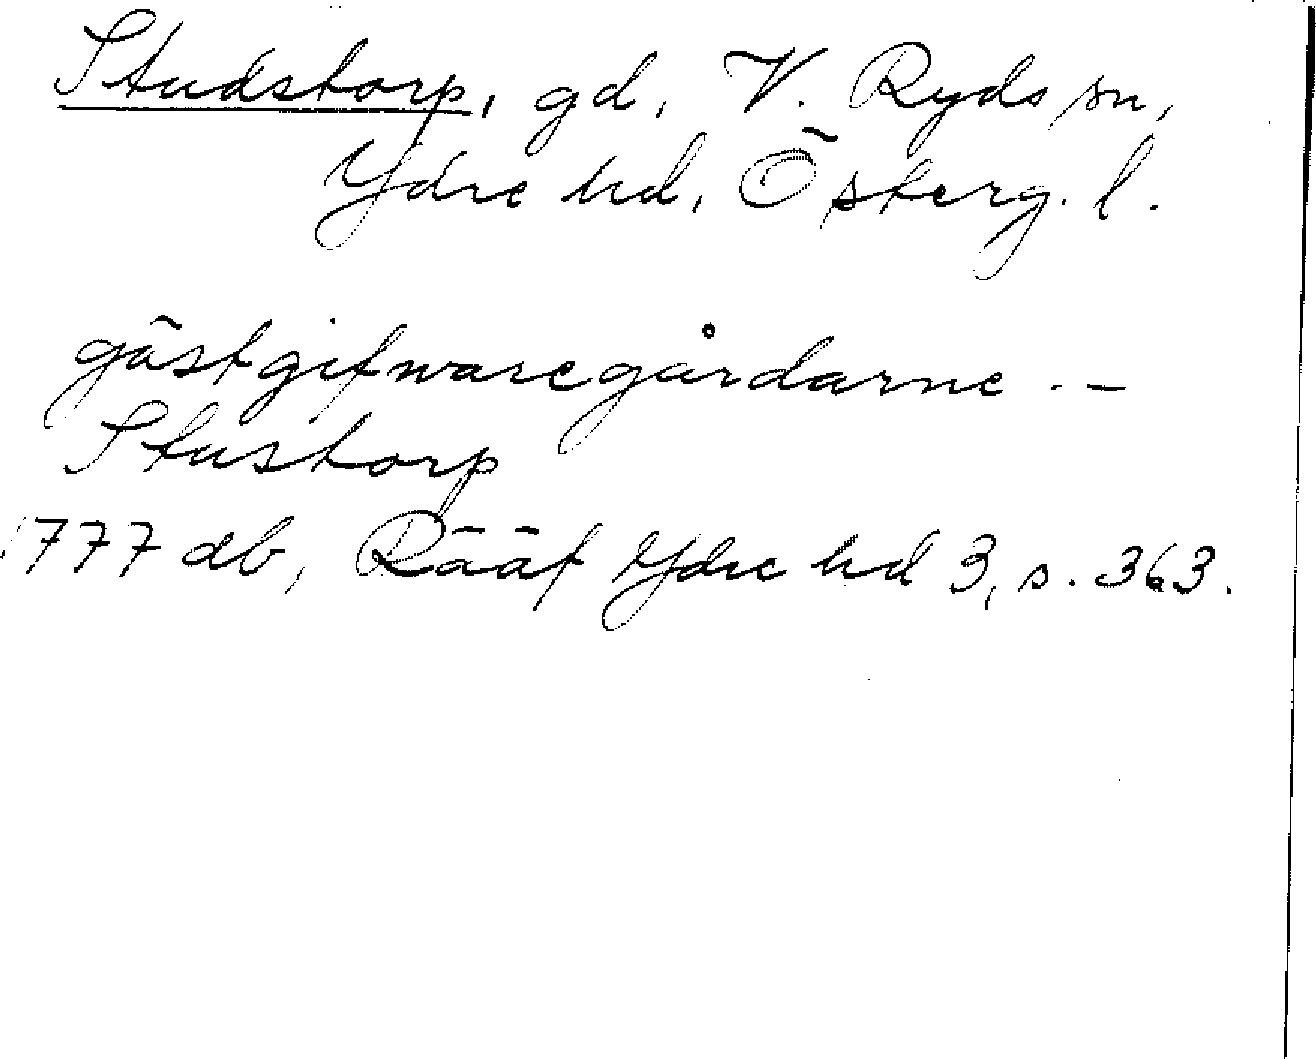 Studstorp, gd, V. Ryds sn,
Ydre hd, Österg. l.
gästgifwaregårdarne . –
Stustorp
1777 db, Rääf Ydre hd 3, s. 363.